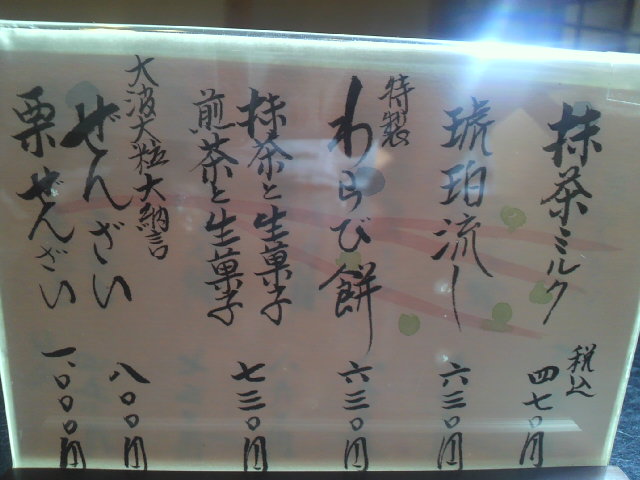 抹茶ミルク
税込
四七〇円
琥珀流し
六三〇円
特製
わらび餅
六三〇円
抹茶と生菓子
煎茶と生菓子
七三〇円
大波大粒大納言
ぜんざい
八〇〇円
栗ぜんざい
一、〇〇〇円